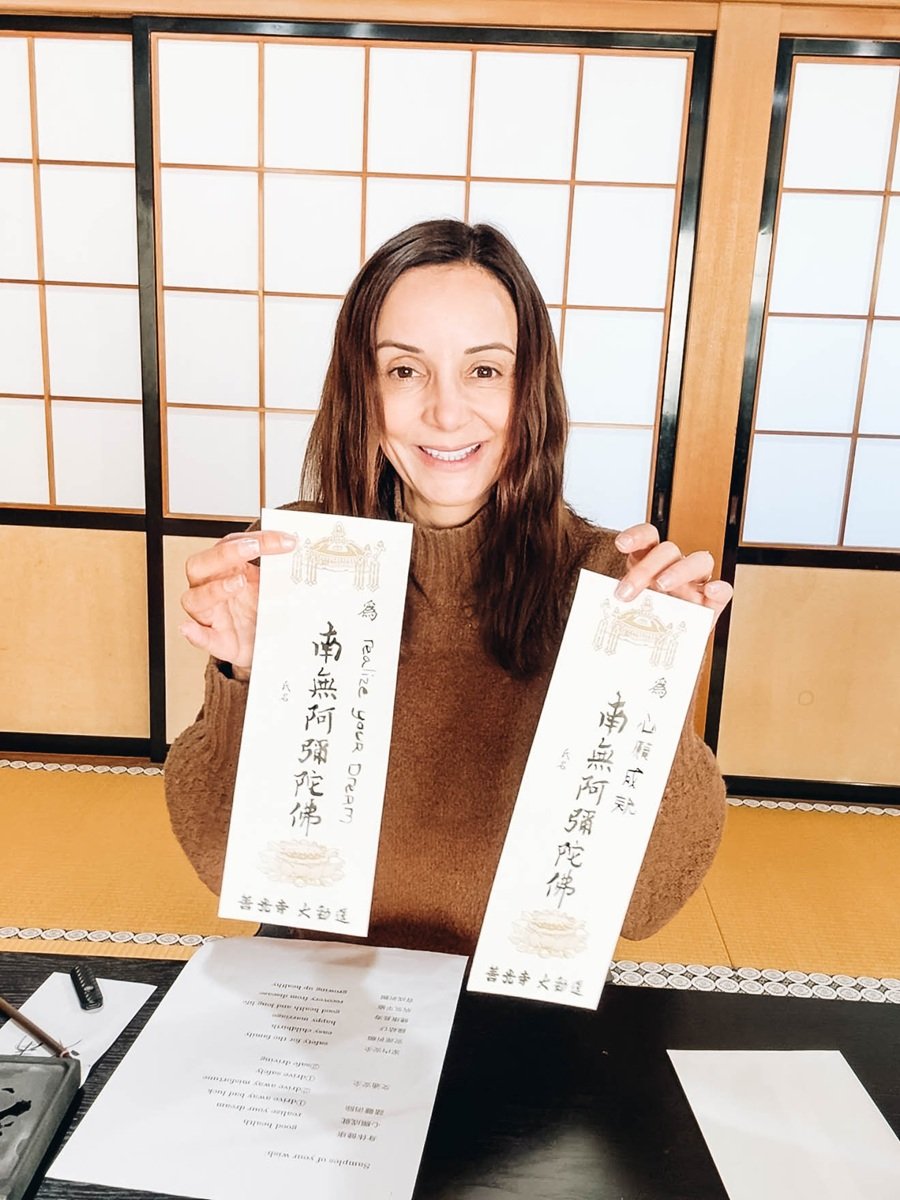 為 realize your Dream
南無阿彌陀佛
氏名
善光寺 大勧進
為 心願成就
南無阿彌陀佛
氏名
善光寺 大勧進
Samples of your wish
身体健康 good health
心願成就 realize your dream
諸難消除 ①drive away bad luck
②drive away misfortune
交通安全 ①drive safety
②safe driving
家内安全 safety for the family
安産祈願 easy childbirth
縁結び happy marriage
健康長寿 good health and long life
病気平癒 recovery from disease
育成祈願 growing up healthy